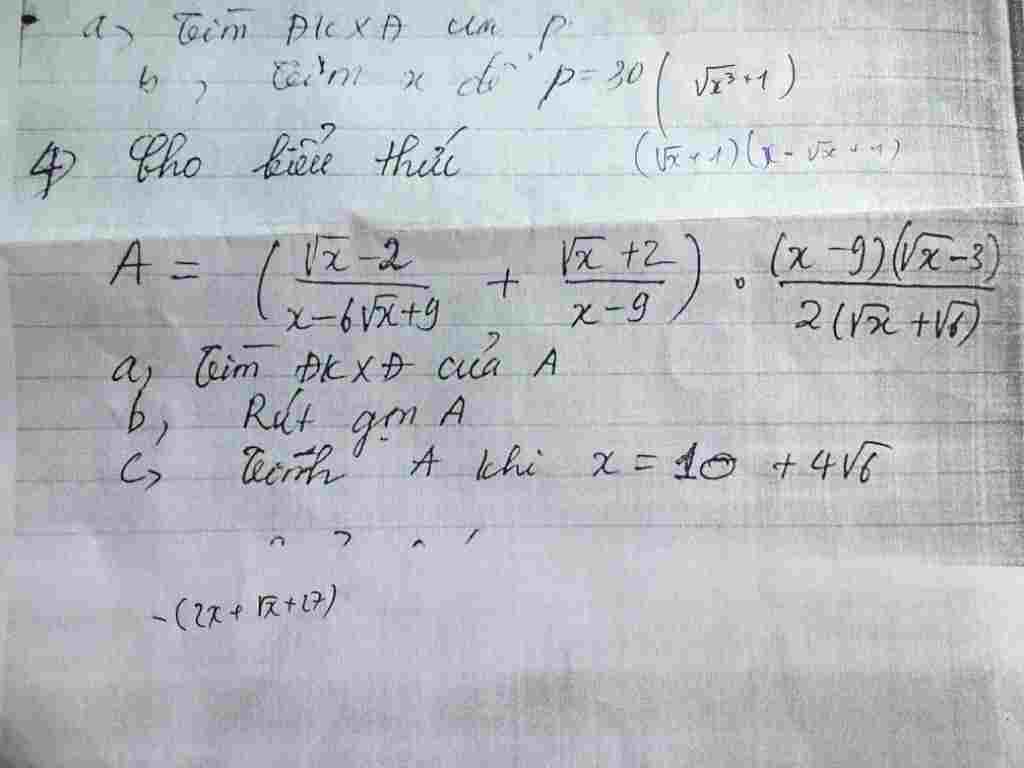 a, Tìm ĐKXĐ của P
b, Tìm x để P = 30 ( √x³ + 1 )
(√x + 1)(x - √x + 1)
4) Cho biểu thức
A = ( (√x - 2)/(x - 6√x + 9) + (√x + 2)/(x - 9) ) . ((x - 9)(√x - 3))/(2(√x + √6))
a, Tìm ĐKXĐ của A
b, Rút gọn A
c, Tính A khi x = 10 + 4√6
-(2x + √x + 27)